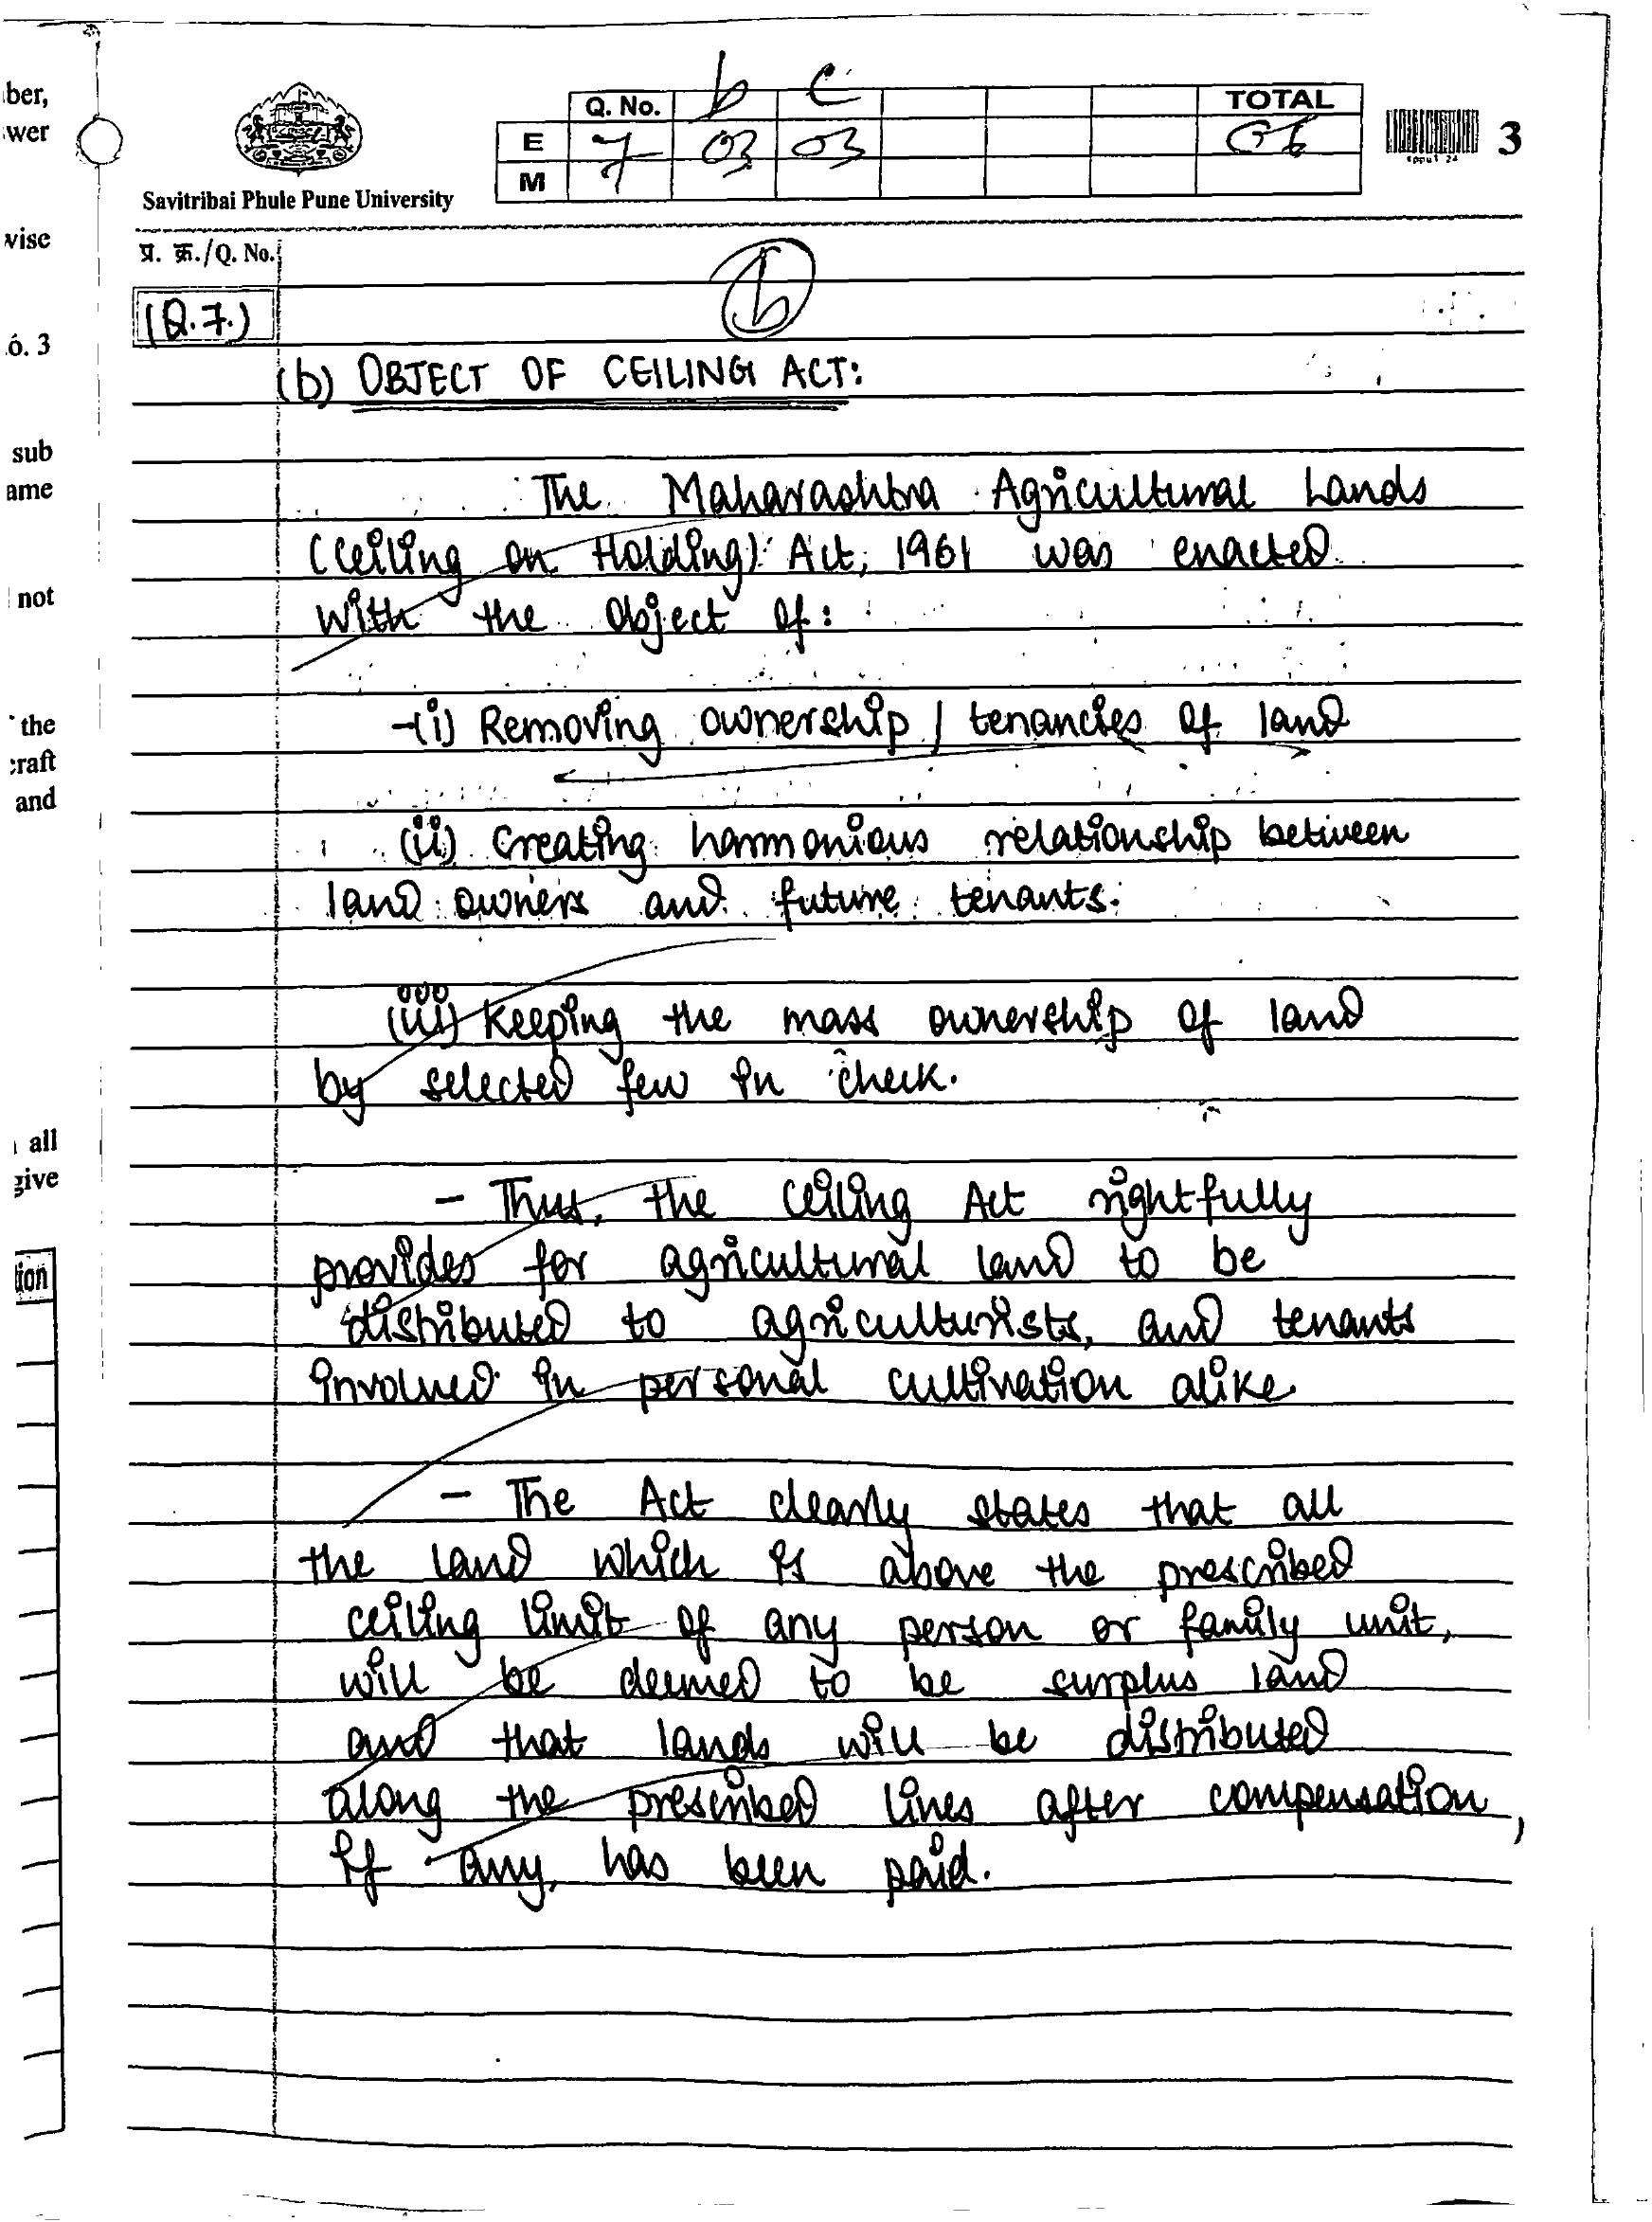 ber,
wer
Savitribai Phule Pune University
Q. No. b c TOTAL
E 7 03 03 06
M
3
wise
प्र. क्र./Q. No.
b
(Q.7.)
o. 3
(b) OBJECT OF CEILING ACT:
sub
ame
The Maharashtra Agricultural Lands
(Ceiling on Holding) Act, 1961 was enacted
not
with the object of:
the
-(i) Removing ownership / tenancies of land
craft
and
(ii) Creating harmonious relationship between
land owners and future tenants.
(iii) Keeping the mass ownership of land
by selected few in check.
all
give
- Thus, the Ceiling Act rightfully
provides for agricultural land to be
tion
distributed to agriculturists, and tenants
involved in personal cultivation alike.
- The Act clearly states that all
the land which is above the prescribed
ceiling limit of any person or family unit,
will be deemed to be surplus land
and that lands will be distributed
along the prescribed lines after compensation,
if any, has been paid.